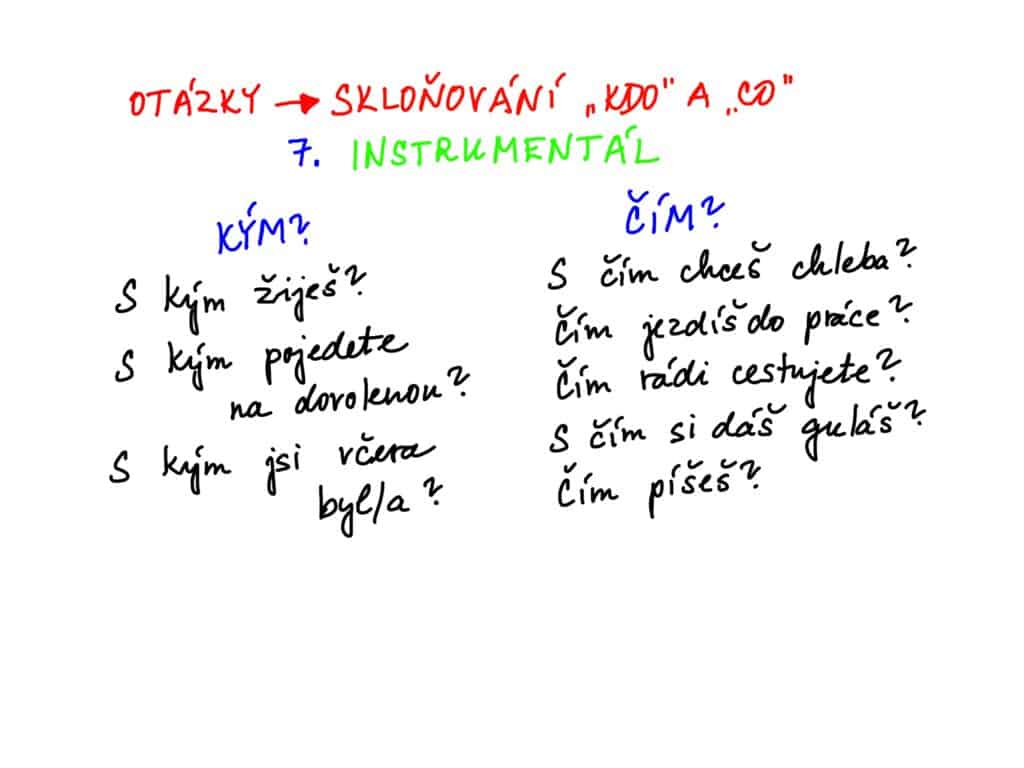 OTÁZKY → SKLOŇOVÁNÍ „KDO" A „CO"
7. INSTRUMENTÁL
KÝM?
S kým žiješ?
S kým pojedete
na dovolenou?
S kým jsi včera
byl/a?
ČÍM?
S čím chceš chleba?
Čím jezdíš do práce?
Čím rádi cestujete?
S čím si dáš guláš?
Čím píšeš?